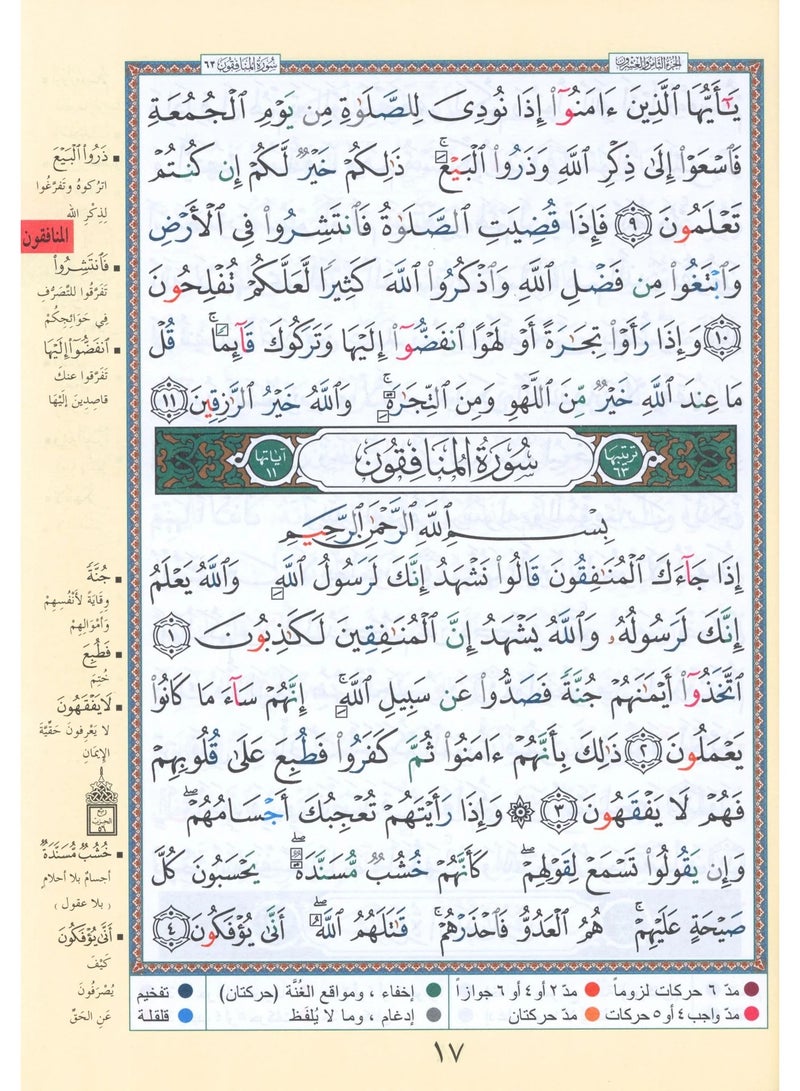 سورة المنافقون ٦٣
الجزء الثامن والعشرون
يَـٰٓأَيُّهَا ٱلَّذِينَ ءَامَنُوٓا۟ إِذَا نُودِىَ لِلصَّلَوٰةِ مِن يَوْمِ ٱلْجُمُعَةِ
فَٱسْعَوْا۟ إِلَىٰ ذِكْرِ ٱللَّهِ وَذَرُوا۟ ٱلْبَيْعَ ۚ ذَٰلِكُمْ خَيْرٌ لَّكُمْ إِن كُنتُمْ
تَعْلَمُونَ ٩ فَإِذَا قُضِيَتِ ٱلصَّلَوٰةُ فَٱنتَشِرُوا۟ فِى ٱلْأَرْضِ
وَٱبْتَغُوا۟ مِن فَضْلِ ٱللَّهِ وَٱذْكُرُوا۟ ٱللَّهَ كَثِيرًا لَّعَلَّكُمْ تُفْلِحُونَ
١٠ وَإِذَا رَأَوْا۟ تِجَـٰرَةً أَوْ لَهْوًا ٱنفَضُّوٓا۟ إِلَيْهَا وَتَرَكُوكَ قَآئِمًا ۚ قُلْ
مَا عِندَ ٱللَّهِ خَيْرٌ مِّنَ ٱللَّهْوِ وَمِنَ ٱلتِّجَـٰرَةِ ۚ وَٱللَّهُ خَيْرُ ٱلرَّٰزِقِينَ ١١
ترتيبها ٦٣ سُورَةُ الْمُنَافِقُونَ آياتها ١١
بِسْمِ ٱللَّهِ ٱلرَّحْمَـٰنِ ٱلرَّحِيمِ
إِذَا جَآءَكَ ٱلْمُنَـٰفِقُونَ قَالُوا۟ نَشْهَدُ إِنَّكَ لَرَسُولُ ٱللَّهِ ۗ وَٱللَّهُ يَعْلَمُ
إِنَّكَ لَرَسُولُهُۥ وَٱللَّهُ يَشْهَدُ إِنَّ ٱلْمُنَـٰفِقِينَ لَكَـٰذِبُونَ ١
ٱتَّخَذُوٓا۟ أَيْمَـٰنَهُمْ جُنَّةً فَصَدُّوا۟ عَن سَبِيلِ ٱللَّهِ ۚ إِنَّهُمْ سَآءَ مَا كَانُوا۟
يَعْمَلُونَ ٢ ذَٰلِكَ بِأَنَّهُمْ ءَامَنُوا۟ ثُمَّ كَفَرُوا۟ فَطُبِعَ عَلَىٰ قُلُوبِهِمْ
فَهُمْ لَا يَفْقَهُونَ ٣ ۞ وَإِذَا رَأَيْتَهُمْ تُعْجِبُكَ أَجْسَامُهُمْ ۖ
وَإِن يَقُولُوا۟ تَسْمَعْ لِقَوْلِهِمْ ۖ كَأَنَّهُمْ خُشُبٌ مُّسَنَّدَةٌ ۖ يَحْسَبُونَ كُلَّ
صَيْحَةٍ عَلَيْهِمْ ۚ هُمُ ٱلْعَدُوُّ فَٱحْذَرْهُمْ ۚ قَـٰتَلَهُمُ ٱللَّهُ ۖ أَنَّىٰ يُؤْفَكُونَ ٤
ذَرُوا۟ ٱلْبَيْعَ
اتركوه وتفرَّغُوا
لِذِكْرِ الله
المنافقون
فَٱنتَشِرُوا۟
تَفَرَّقُوا للتَّصَرُّفِ
فِي حَوَائِجِكُمْ
ٱنفَضُّوٓا۟ إِلَيْهَا
تَفَرَّقوا عنكَ
قاصِدينَ إلَيْهَا
جُنَّةً
وِقايَةً لأَنْفُسِهِمْ
وَأَمْوَالِهِمْ
فَطُبِعَ
خُتِمَ
لَا يَفْقَهُونَ
لا يَعْرِفونَ حَقِّيَّةَ
الإِيمَانِ
ربع
الحزب
٥٦
خُشُبٌ مُّسَنَّدَةٌ
أجسامٌ بلا أحلامٍ
( بلا عقول )
أَنَّىٰ يُؤْفَكُونَ
كَيْفَ
يُصْرَفُونَ
عَنِ الحَقِّ
مدّ ٦ حركات لزوماً مدّ ٢ أو ٤ أو ٦ جوازاً إخفاء ، ومواقع الغُنَّة (حركتان) تفخيم
مدّ واجب ٤ أو ٥ حركات مدّ حركتان إدغام ، وما لا يُلفَظ قلقلة
١٧